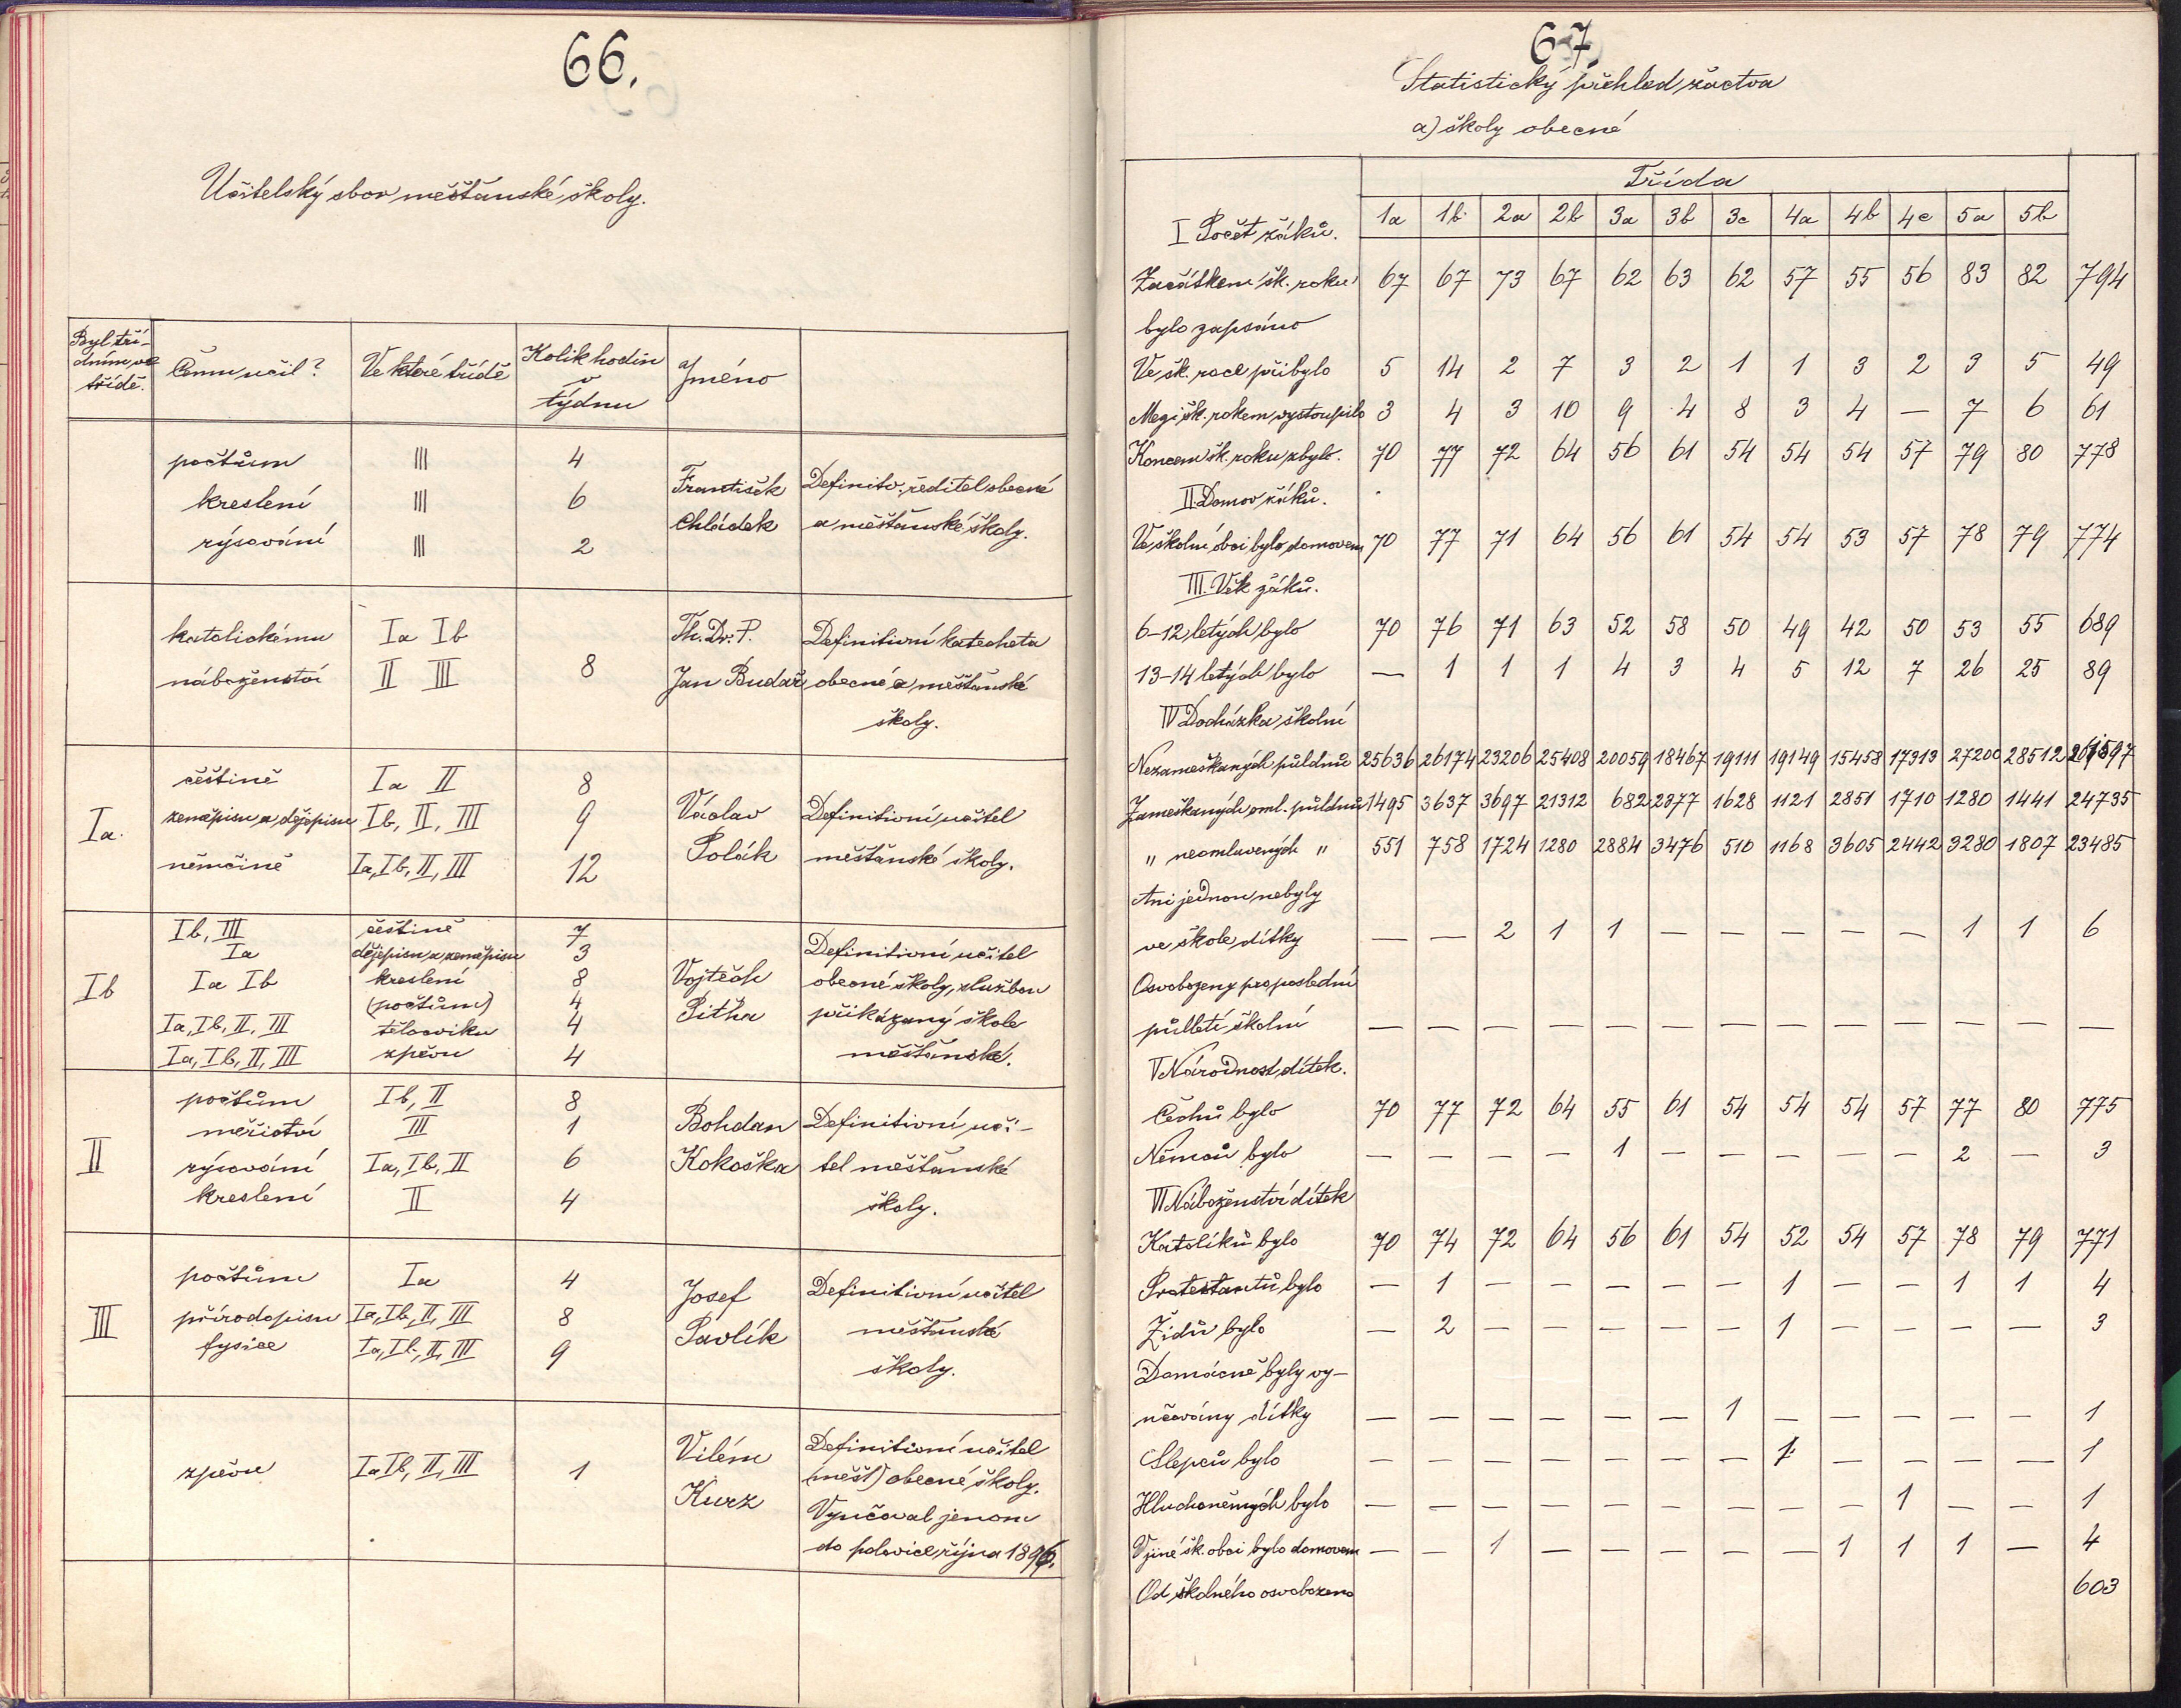 66.
Učitelský sbor měšťanské školy.
Byl tří-
dním ve
třídě.
Čemu učil?
Ve které třídě
Kolik hodin
v
týdnu
Jméno
počtům III 4
kreslení III 6
rýsování III 2
František
Chládek
Definitv. ředitel obecné
a měšťanské školy.
katolickému Ia Ib
náboženství II III 8
Th. Dr. P.
Jan Budař
Definitivní katecheta
obecné a měšťanské
školy.
Ia.
češtině Ia II 8
zeměpisu a dějepisu Ib, II, III 9
němčině Ia, Ib, II, III 12
Václav
Polák
Definitivní učitel
měšťanské školy.
Ib
Ib, III češtině 7
Ia dějepisu a zeměpisu 3
Ia Ib kreslení 8
(počtům) 4
Ia, Ib, II, III tělocviku 4
Ia, Ib, II, III zpěvu 4
Vojtěch
Pitha
Definitivní učitel
obecné školy, službou
přikázaný škole
měšťanské.
II
počtům Ib, II 8
měřictví III 1
rýsování Ia, Ib, II 6
kreslení II 4
Bohdan
Kokoška
Definitivní uči-
tel měšťanské
školy.
III
počtům Ia 4
přírodopisu Ia, Ib, II, III 8
fysice Ia, Ib, II, III 9
Josef
Pavlík
Definitivní učitel
měšťanské
školy.
zpěvu Ia Ib, II, III 1
Vilém
Kurz
Definitivní učitel
(měšť) obecné školy.
Vyučoval jenom
do polovice října 1896.
67.
Statistický přehled žactva
a) školy obecné
Třída
I Počet žáků. 1a 1b 2a 2b 3a 3b 3c 4a 4b 4c 5a 5b
Začátkem šk. roku 67 67 73 67 62 63 62 57 55 56 83 82 794
bylo zapsáno
Ve šk. roce přibylo 5 14 2 7 3 2 1 1 3 2 3 5 49
Mezi šk. rokem vystoupilo 3 4 3 10 9 4 8 3 4 — 7 6 61
Koncem šk. roku zbylo. 70 77 72 64 56 61 54 54 54 57 79 80 778
II. Domov žáků.
Ve školní obci bylo domovem 70 77 71 64 56 61 54 54 53 57 78 79 774
III. Věk žáků.
6–12 letých bylo 70 76 71 63 52 58 50 49 42 50 53 55 689
13–14 letých bylo — 1 1 1 4 3 4 5 12 7 26 25 89
IV Docházka školní
Nezameškaných půldnů 25636 26174 23206 25408 20059 18467 19111 19149 15458 17313 27200 28512
Zameškaných oml. půldnů 1495 3637 3697 21312 682 2377 1628 1121 2851 1710 1280 1441 24735
" neomluvených " 551 758 1724 1280 2884 3476 510 1168 3605 2442 3280 1807 23485
Ani jednou nebyly
ve škole dítky — — 2 1 1 — — — — — 1 1 6
Osvobozeny pro poslední
půlletí školní — — — — — — — — — — — — —
V Národnost dítek.
Čechů bylo 70 77 72 64 55 61 54 54 54 57 77 80 775
Němců bylo — — — — 1 — — — — — 2 — 3
VI Náboženství dítek
Katolíků bylo 70 74 72 64 56 61 54 52 54 57 78 79 771
Protestantů bylo — 1 — — — — — 1 — — 1 1 4
Židů bylo — 2 — — — — — 1 — — — — 3
Domácně byly vy-
učovány dítky — — — — — — 1 — — — — — 1
Slepců bylo — — — — — — — 1 — — — — 1
Hluchoněmých bylo — — — — — — — — — 1 — — 1
V jiné šk. obci bylo domovem — — 1 — — — — — 1 1 1 — 4
Od školného osvobozeno 603